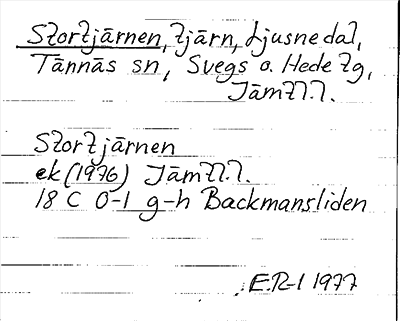 Stortjärnen, tjärn, Ljusnedal,
Tännäs sn, Svegs o. Hede tg,
Jämtl.l.
Stortjärnen
ek (1976) Jämtl.l.
18 C 0-1 g-h Backmansliden
E.R-l 1977